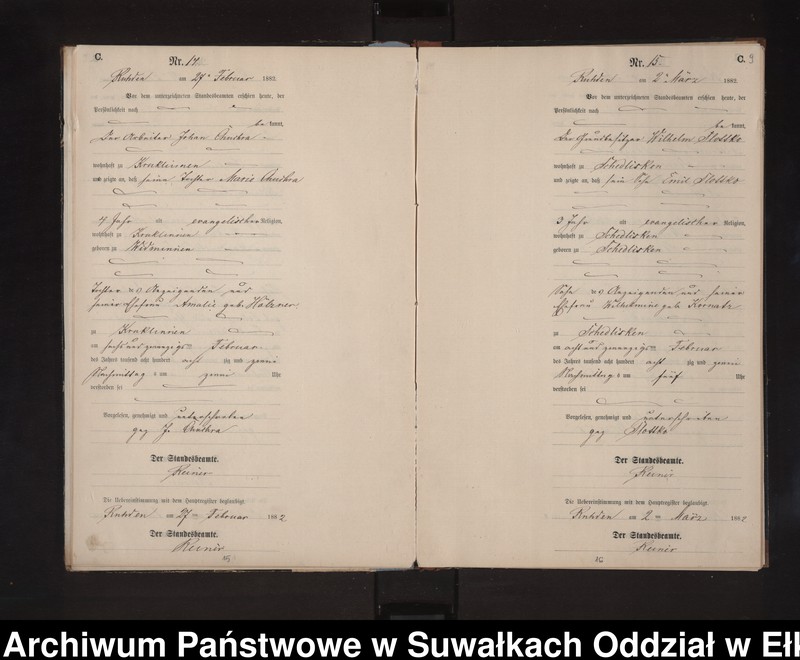 C.
Nr. 14.
Ruhden am 27ᵗ Februar 1882.
Vor dem unterzeichneten Standesbeamten erschien heute, der
Persönlichkeit nach
be kannt,
Der Arbeiter Johan
wohnhaft zu Kruklinnen
und zeigte an, daß seine Tochter Marie
4 Jahr alt evangelischer Religion,
wohnhaft zu Kruklinnen
geboren zu Widminnen
Tochter des Anzeigenden und
seiner Ehefrau Amalie geb.
zu Kruklinnen
am sechs und zwanzigsten Februar
des Jahres tausend acht hundert acht zig und zwei
Nachmittag s um zwei Uhr
verstorben sei
Vorgelesen, genehmigt und unterschrieben
gez J.
Der Standesbeamte.
Die Uebereinstimmung mit dem Hauptregister beglaubigt.
Ruhden am 27ten Februar 1882.
Der Standesbeamte.
C. 9
Nr. 15.
Ruhden am 2ᵗ März 1882.
Vor dem unterzeichneten Standesbeamten erschien heute, der
Persönlichkeit nach
be kannt,
Der Grundbesitzer Wilhelm Slottko
wohnhaft zu Schedlisken
und zeigte an, daß sein Sohn Emil Slottko
3 Jahr alt evangelischer Religion,
wohnhaft zu Schedlisken
geboren zu Schedlisken
Sohn des Anzeigenden und seiner
Ehefrau Wilhelmine geb
zu Schedlisken
am acht und zwanzigsten Februar
des Jahres tausend acht hundert acht zig und zwei
Nachmittag s um fünf Uhr
verstorben sei
Vorgelesen, genehmigt und unterschrieben
gez Slottko
Der Standesbeamte.
Die Uebereinstimmung mit dem Hauptregister beglaubigt.
Ruhden am 2ten März 1882
Der Standesbeamte.
Archiwum Państwowe w Suwałkach Oddział w Ełk